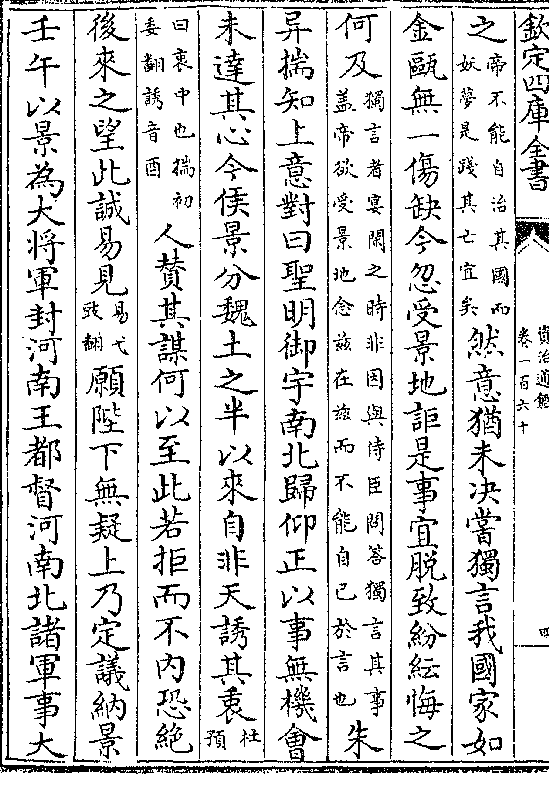 欽定四庫全書
資治通鑑
卷一百六十
四
之帝不能自治其國而妖夢是踐其亡宜矣然意猶未決嘗獨言我國家如
金甌無一傷缺今忽受景地詎是事宜脱致紛紜悔之
何及獨言者宴閑之時非因與侍臣問答獨言其事蓋帝欲受景地念兹在兹而不能自已於言也朱
异揣知上意對曰聖明御宇南北歸仰正以事無機會
未達其心今侯景分魏土之半以來自非天誘其衷杜預
曰衷中也揣初委翻誘音酉人賛其謀何以至此若拒而不内恐絶
後來之望此誠易見易弋豉翻願陛下無疑上乃定議納景
壬午以景為大将軍封河南王都督河南北諸軍事大